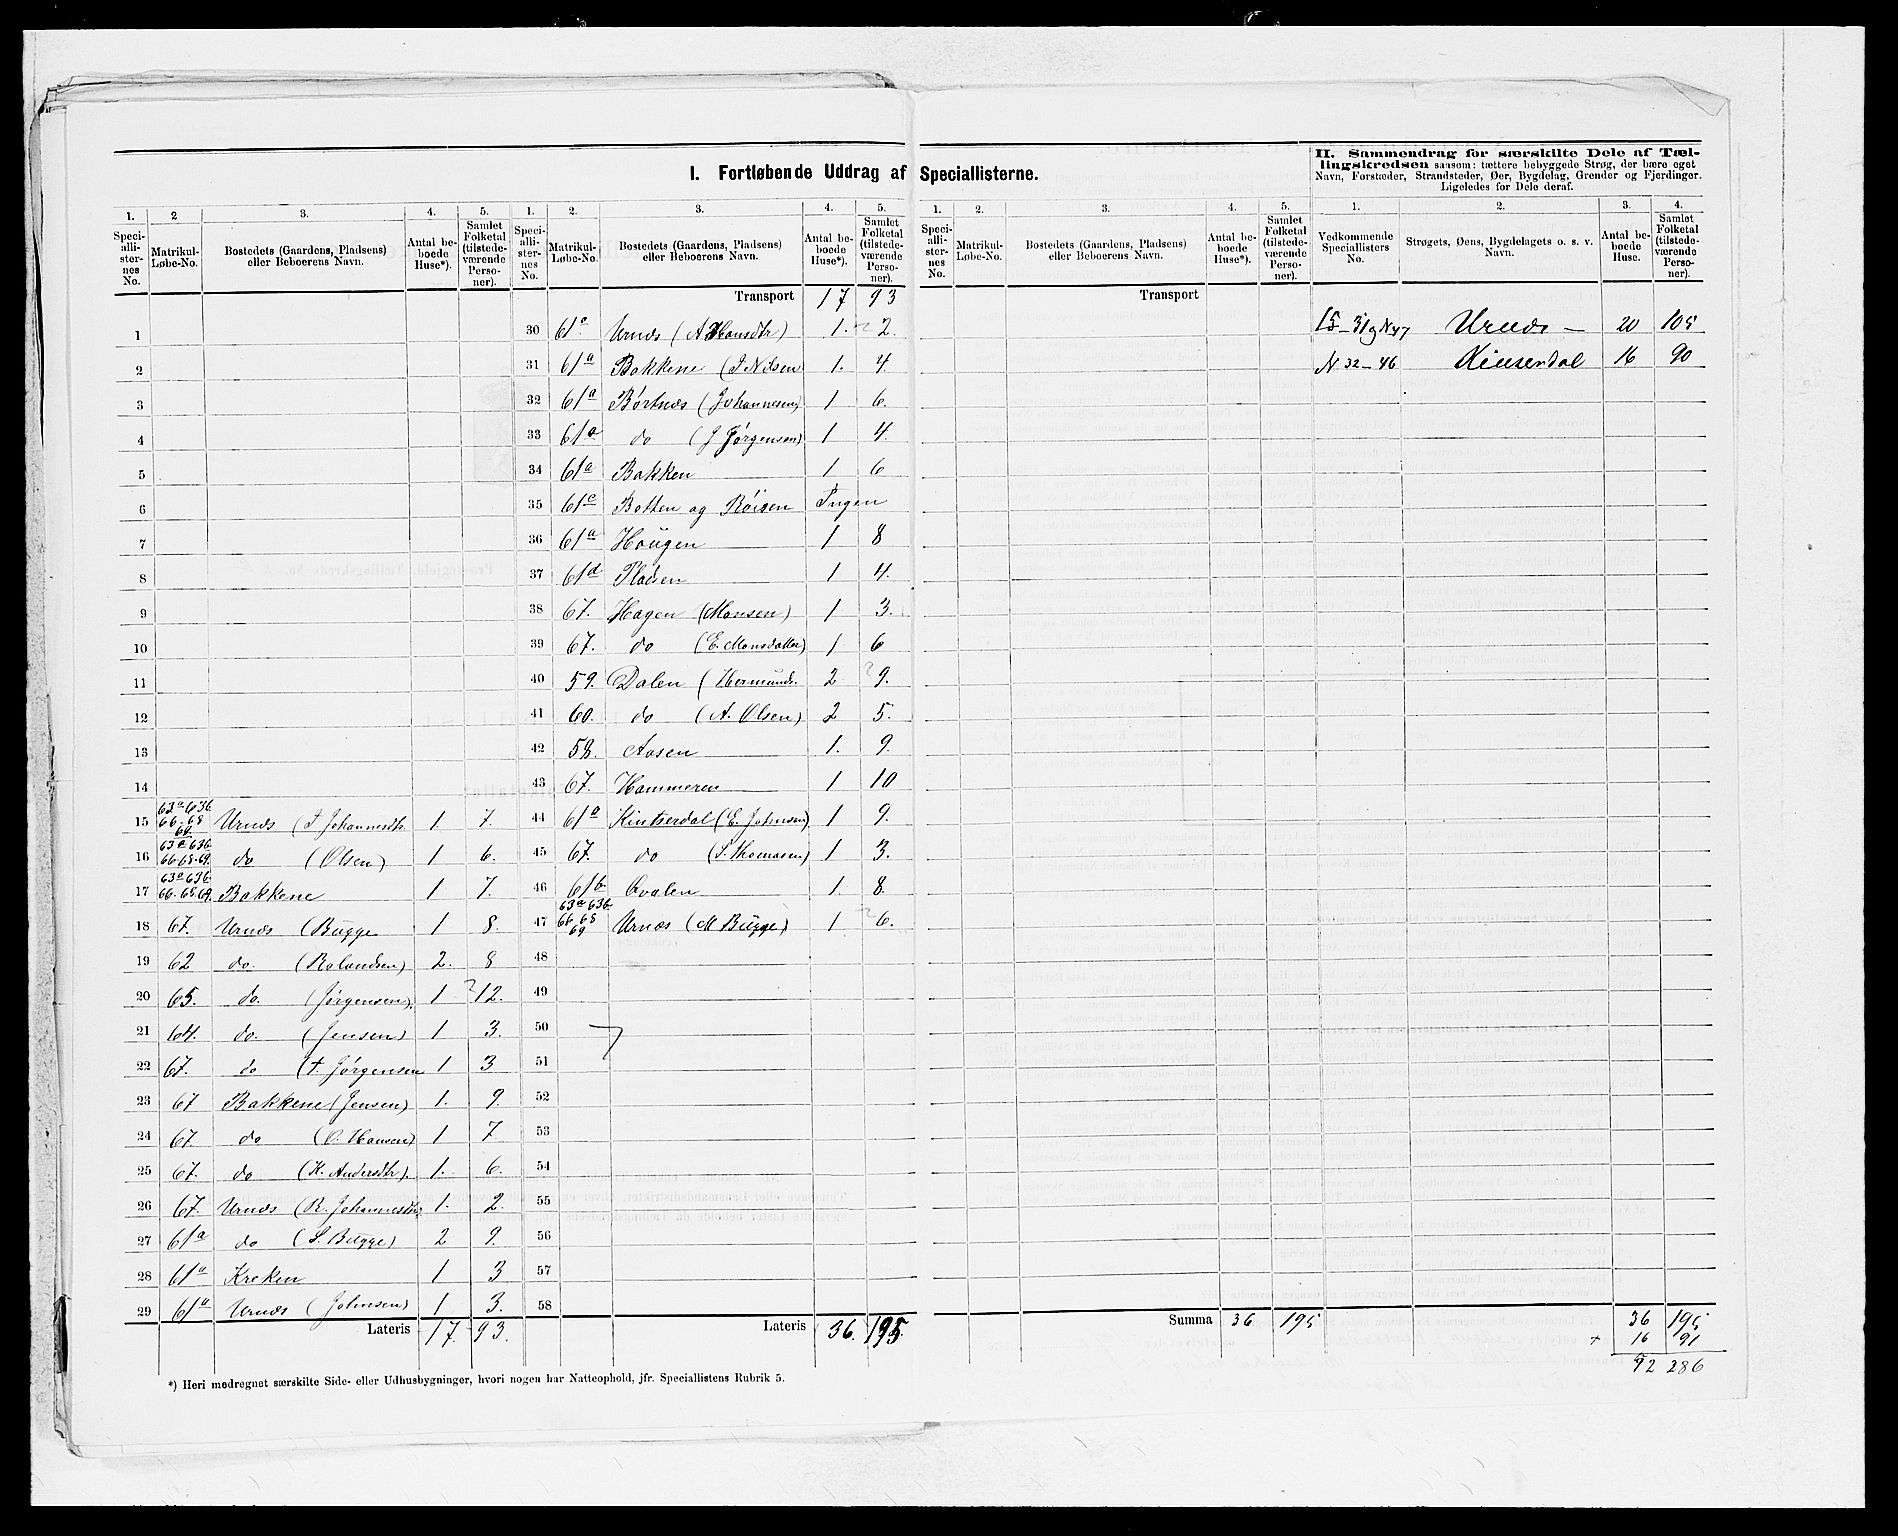 I. Fortløbende Uddrag af Speciallisterne.
II. Sammendrag for særskilte Dele af Tæl-
lingskredsen saasom: tættere bebyggede Strøg, der bære eget
Navn, Forstæder, Strandsteder, Øer, Bygdelag, Grender og Fjerdinger.
Ligeledes for Dele deraf.
1. 2 3. 4. 5.
Speci-alli-ster-nes No. Matrikul-Løbe-No. Bostedets (Gaardens, Pladsens) eller Beboerens Navn. Antal be-boede Huse*). Samlet Folketal (tilstede-værende Perso-ner).
1
2
3
4
5
6
7
8
9
10
11
12
13
14
15 63a 63b 66-68 69 Urnæs (J Johannesdtr 1. 7.
16 63a 63b 66-68-69 do (Olsen) 1 6.
17 63a 63b 66-68-69 Bakkene 1 7.
18 67. Urnæs (Bugge 1 8.
19 62 do. (Rolandsen) 2. 8
20 65. do. (Jørgensen). 1 ? 12.
21 64. do. (Jensen) 1 3.
22 67. do (T. Jørgensen 1 3
23 67 Bakkene (Jensen) 1. 9.
24 67. do (O. Hansen) 1 7
25 67. do (K. Andersdtr). 1. 6.
26 67. Urnæs (R. Johannesdtr 1. 2.
27 61a do (S. Bugge) 2 9.
28 61a Kreken 1 3
29 61a Urnæs (Johnsen) 1 3.
Lateris 17. 93.
1. 2. 3. 4. 5.
Speci-alli-ster-nes No. Matrikul-Løbe-No. Bostedets (Gaardens, Pladsens) eller Beboerens Navn. Antal be-boede Huse*). Samlet Folketal (tilstede-værende Perso-ner).
Transport 17 93
30 61a Urnæs (A Hansdtr) 1. ? 2.
31 61a Bakkene (J Nilsen 1. 4.
32 61a Børtnæs (Johannesen) 1 6.
33 61a do (J Jørgensen) 1 4.
34 61a Bakken 1 6
35 61c Botten og Röisen Ingen
36 61a Hougen 1 8
37 61d Pladsen 1 4.
38 67. Hagen (Monsen) 1 3.
39 67. do (E. Monsdatter) 1 6
40 59. Dalen (Hermunds. 2 ? 9.
41 60. do (A. Olsen) 2 5.
42 58. Aasen 1. 9.
43 67. Hammeren 1 10
44 61a Kintserdal (E. Johnsen) 1 9.
45 67. do (S. Thomasen) 1 3.
46 61b Qvalen 1. 8.
47 63a 63b 66 68 69 Urnæs (M Bugge) 1 ? 6.
48
49
50
51
52
53
54
55
56
57
58
Lateris 36. 195.
1. 2. 3. 4. 5.
Speci-alli-ster-nes No. Matrikul-Løbe-No. Bostedets (Gaardens, Pladsens) eller Beboerens Navn. Antal be-boede Huse*). Samlet Folketal (tilstede-værende Perso-ner).
Transport
Summa 36 195
1. 2. 3. 4.
Vedkommende Speciallisters No. Strøgets, Øens, Bygdelagets o. s. v. Navn. Antal be-boede Huse. Samlet Folketal (tilstede-værende Perso-ner).
15-31 og N 47 Urnæs – 20 105
N 32-46 Kinserdal 16 90
36 195
+ 16 91
52 286
*) Heri medregnet særskilte Side- eller Udhusbygninger, hvori nogen har Natteophold, jfr. Speciallistens Rubrik 5.